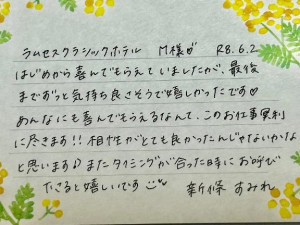 ラムセスクラシックホテル M様♡ R8.6.2
はじめから喜んでもらえていましたが、最後
までずっと気持ち良さそうで嬉しかったです♡
あんなにも喜んでもらえるなんて、このお仕事冥利
に尽きます!! 相性がとても良かったんじゃないかな
と思います♪ またタイミングが合った時にお呼び
ださると嬉しいです 新條 すみれ